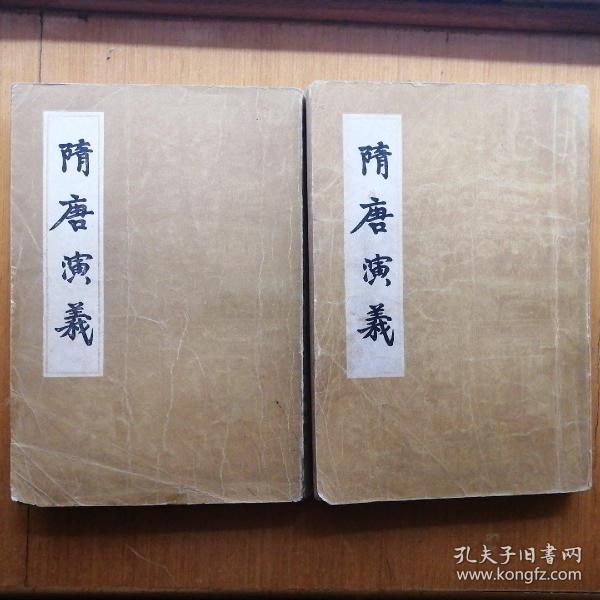 隋唐演義
隋唐演義
孔夫子旧書网
www.kongfz.com